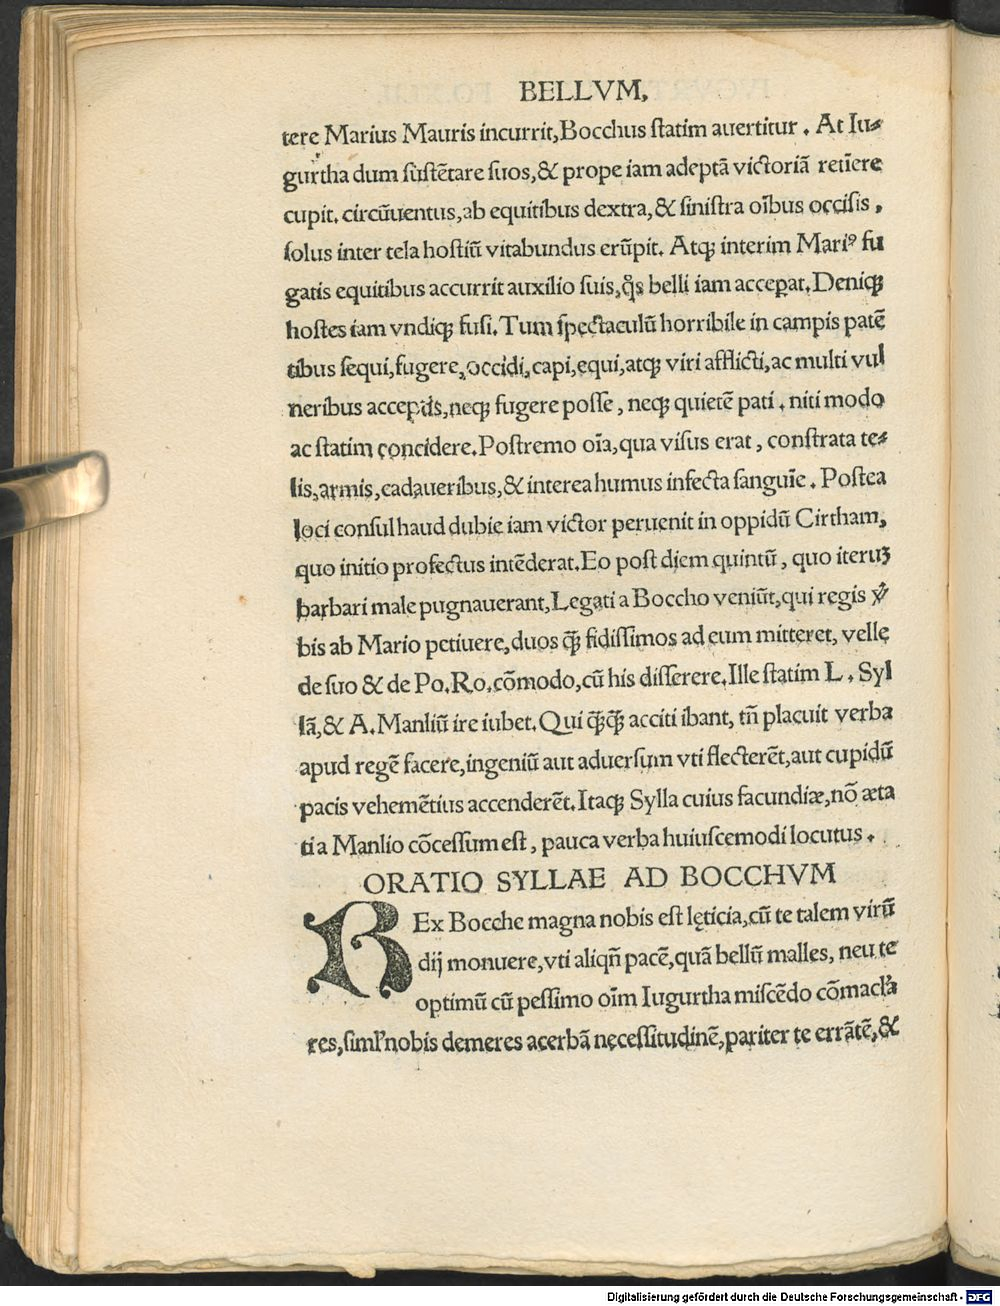 BELLVM,
tere Marius Mauris incurrit,Bocchus ſtatim auertitur . At Iu⸗
gurtha dum ſuſtētare ſuos,& prope iam adeptā victoriā retiēre
cupit. circūuentus,ab equitibus dextra,& ſiniſtra oībus occiſis .
ſolus inter tela hoſtiū vitabundus erūpit. Atqꝫ interim Mariꝰ fu
gatis equitibus accurrit auxilio ſuis,q̊s belli iam acceperat.Deniqꝫ
hoſtes iam vndiqꝫ fuſi.Tum ſpectaculū horribile in campis patē
tibus ſequi,fugere,occidi,capi,equi,atqꝫ viri afflicti,ac multi vul
neribus acceptis,neqꝫ fugere poſſe , neqꝫ quietē pati . niti modo
ac ſtatim concidere.Poſtremo oīa,qua viſus erat , conſtrata te⸗
lis,armis,cadaueribus,& interea humus infecta ſanguīe . Poſtea
loci conſul haud dubie iam victor peruenit in oppidū Cirtham,
quo initio profectus intēderat.Eo poſt diem quintū , quo iteruꝫ
barbari male pugnauerant,Legati a Boccho veniūt,qui regis
bis ab Mario petiuere,duos qꝫ̄ fidiſſimos ad eum mitteret, velle
de ſuo & de Po.Ro.cōmodo,cū his diſſerere.Ille ſtatim L . Syl
lā,& A.Manliū ire iubet.Qui qꝫ̄qꝫ̄ acciti ibant, tn̄ placuit verba
apud regē facere,ingeniū aut aduerſum vti flecterēt,aut cupidū
pacis vehemētius accenderēt.Itaqꝫ Sylla cuius facundiæ,nō æta
ti a Manlio cōceſſum eſt , pauca verba huiuſcemodi locutus .
ORATIO SYLLAE AD BOCCHVM
REx Bocche magna nobis eſt lęticia,cū te talem virū
dij monuere,vti aliqn̄ pacē,quā bellū malles, neu te
optimū cū peſſimo oīm Iugurtha miſcēdo cōmacľa
res,ſimľ nobis demeres acerbā neceſſitudinē,pariter te errātē,&
Digitalisierung gefördert durch die Deutsche Forschungsgemeinschaft - DFG